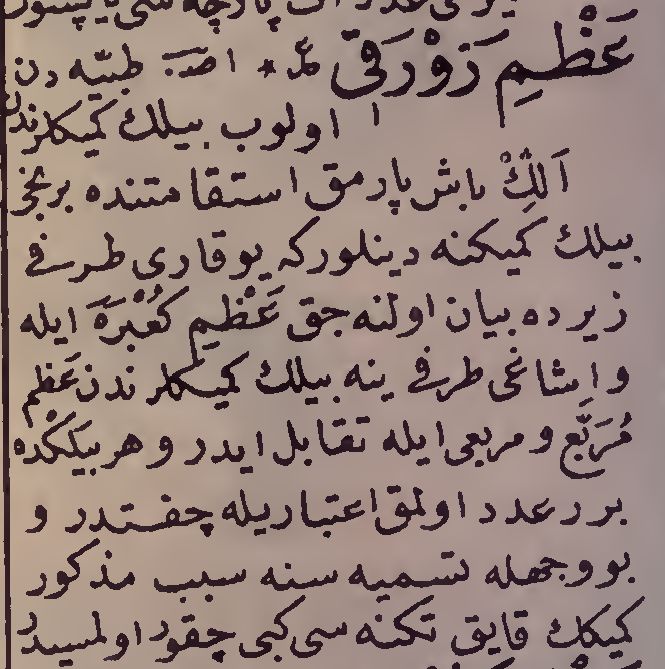 عَظْمِ زَوْرَقِى عم * اصـ طبيّه دن
اولوب بيلك كميكلرندن
اَلِكْ باش پارمق استقامتنده برنجى
بيلك كميكنه دينلوركه يوقارى طرفى
زيرده بيان اولنه جق عَظْمِ كُعْبُرَه ايله
و اِشاغى طرفى ينه بيلك كميكلرندن عَظْمِ
مُرَبَّع و مربعى ايله تقابل ايدر و هر بيلكده
برر عدد اولمق اعتباريله چفتدر و
بو وجهله تسميه سنه سبب مذكور
كميكك قايق تكنه سى كبى چقور اولمسيدر